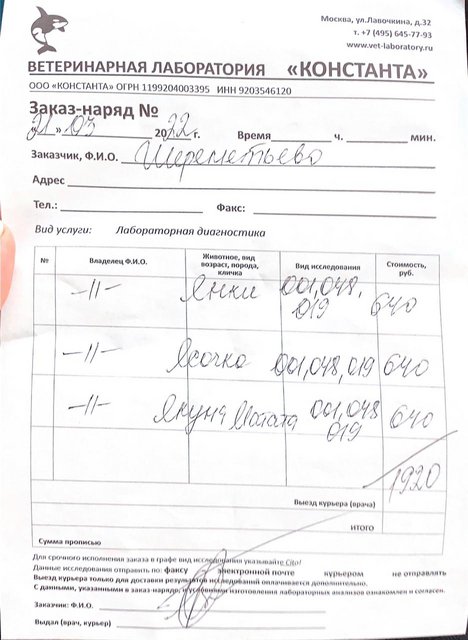 Москва, ул.Лавочкина, д.32
т. +7 (495) 645-77-93
www.vet-laboratory.ru
ВЕТЕРИНАРНАЯ ЛАБОРАТОРИЯ «КОНСТАНТА»
ООО «КОНСТАНТА» ОГРН 1199204003395 ИНН 9203546120
Заказ-наряд №
«21» 03 2022 г. Время ч. мин.
Заказчик, Ф.И.О. Шереметьево
Адрес
Тел.: Факс:
Вид услуги: Лабораторная диагностика
№ Владелец Ф.И.О. Животное, вид возраст, порода, кличка Вид исследования Стоимость, руб.
-||- Янки 001,048, 019 640
-||- Ясочка 001,048,019 640
-||- Якуна Матата 001,048 019 640
1920
Выезд курьера (врача)
ИТОГО
Сумма прописью
Для срочного исполнения заказа в графе вид исследования указывайте Cito!
Данные исследования отправить по: факсу электронной почте курьером не отправлять
Выезд курьера только для доставки результатов исследований оплачивается дополнительно.
С данными, указанными в заказ-наряде, и условиями изготовления лабораторных анализов ознакомлен и согласен.
Заказчик: Ф.И.О.
Выдал (врач, курьер)